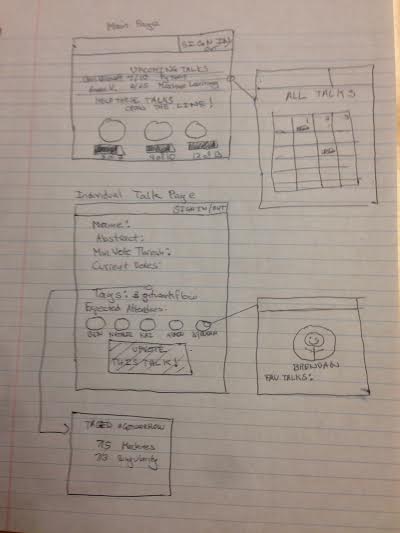 Main Page
SIGN IN/
OUT
UPCOMING TALKS
7/10 Pytest
9/25 Machine Learning
HELP THESE TALKS
CROSS THE LINE!
ALL TALKS
Individual Talk Page
SIGN IN/OUT
Name:
Abstract:
Min Vote Thresh:
Current Votes:
Tags: gitworkflow
Expected Attendees:
BEN
KAT
BRENDAN
UPVOTE
THIS TALK!
BRENDAN
FAV TALKS:
7/5
7/3 Singularity